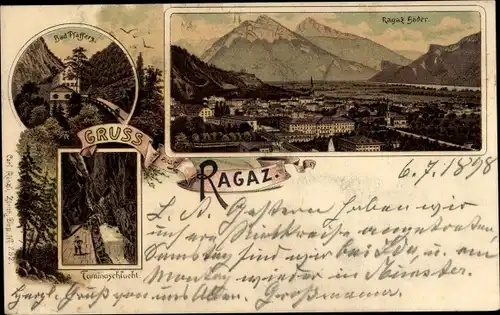 Bad Pfäffers.
Ragaz Bäder.
GRUSS
RAGAZ.
Taminaschlucht.
6.7.1898
L. A. Gestern haben wir
unsere Rückreise angetreten
Samstag sind wir bei
Montag wieder in Münster.
Herzl. Gruß von uns Allen. Großmama.